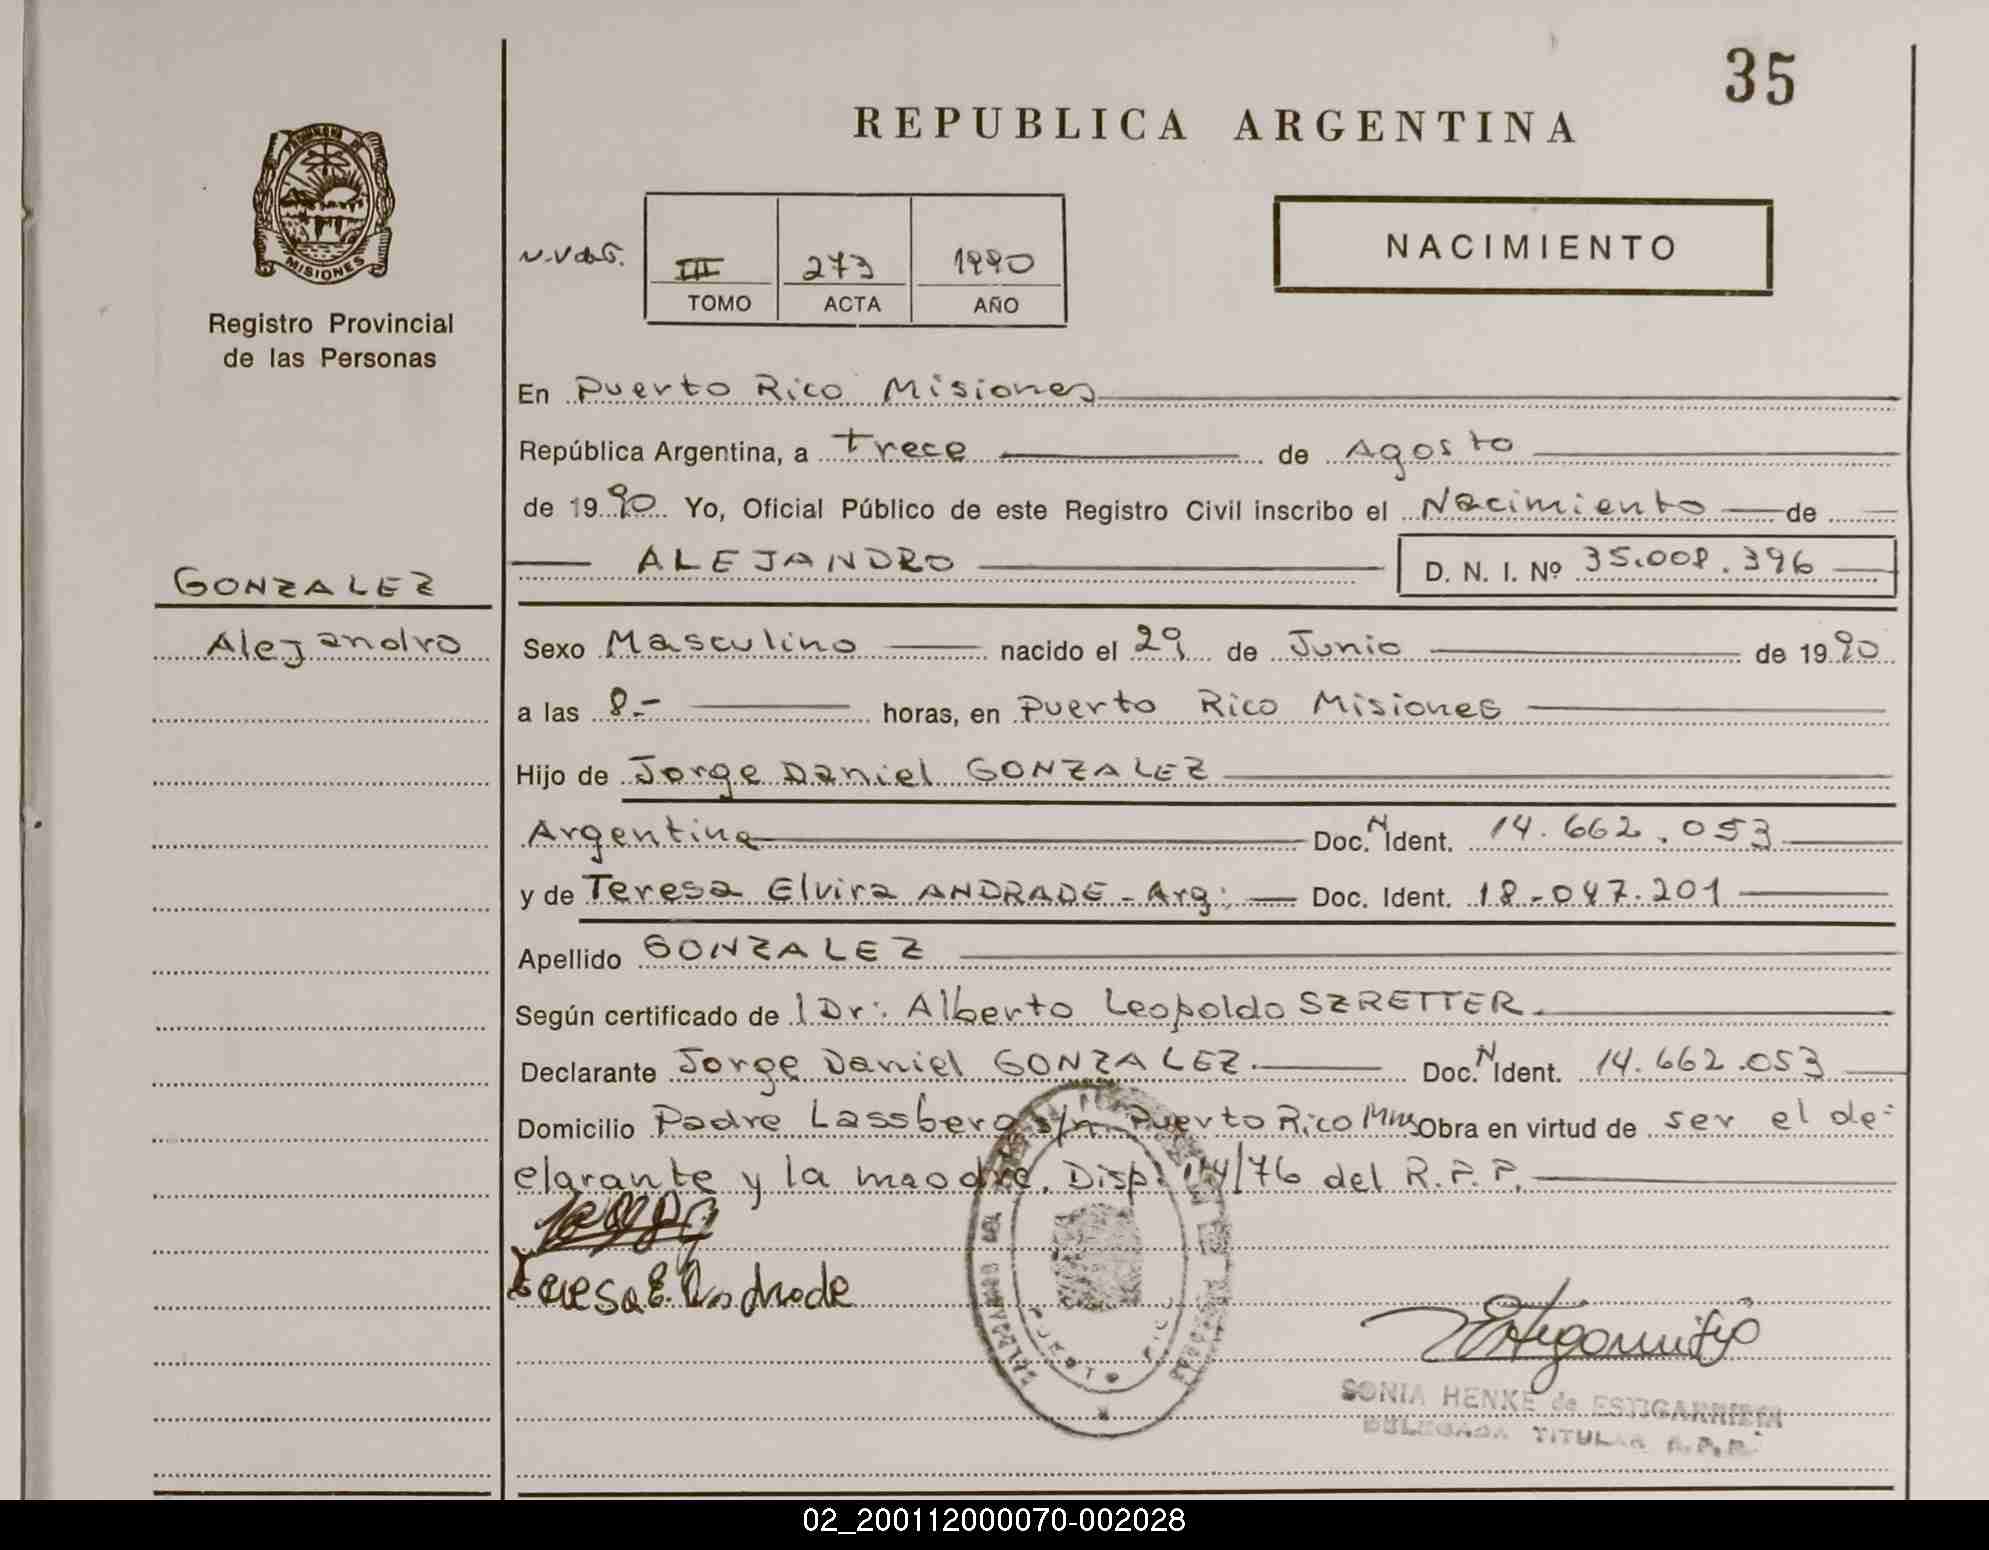 35
REPUBLICA ARGENTINA
MISIONES
Registro Provincial
de las Personas
III 273 1990
TOMO ACTA AÑO
NACIMIENTO
En Puerto Rico Misiones
República Argentina, a trece de Agosto
de 1990 Yo, Oficial Público de este Registro Civil inscribo el Nacimiento de
ALEJANDRO D. N. I. Nº 35.008.396
GONZALEZ
Alejandro
Sexo Masculino nacido el 29 de Junio de 1990
a las 8.- horas, en Puerto Rico Misiones
Hijo de Jorge Daniel GONZALEZ
Argentina Doc. N Ident. 14.662.053
y de Teresa Elvira ANDRADE - Arg: Doc. Ident. 18-047.201
Apellido GONZALEZ
Según certificado de l Dr: Alberto Leopoldo SZRETTER.
Declarante Jorge Daniel GONZALEZ. Doc. N Ident. 14.662.053
Domicilio Padre Lassberg s/n. Puerto Rico Mnes Obra en virtud de ser el de-
clarante y la madre. Disp. /76 del R.P.P.
Teresa E. Andrade
PUERTO RICO
SONIA HENKE de ESTIGARRIBIA
DELEGADA TITULAR R.P.P.
02_200112000070-002028